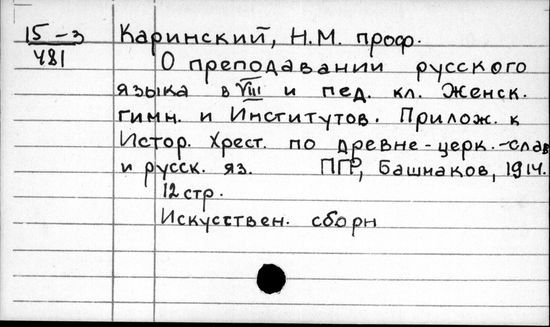 15-3
481
Каринский, Н.М. проф.
О преподавании русского
языка в VIII и пед. кл. Женск.
гимн. и Институтов. Прилож. к
Истор. Хрест. по древне-церк.-слав
и русск. яз. ПГР, Башмаков, 1914.
12 стр.
Искусствен. сборн